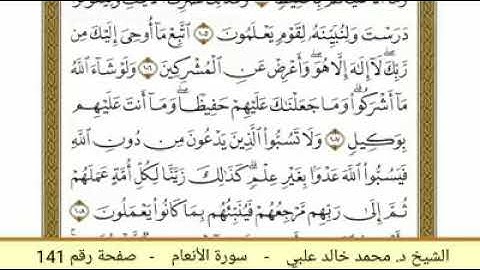 دَرَسْتَ وَلِنُبَيِّنَهُۥ لِقَوْمٖ يَعْلَمُونَ ١٠٥ ٱتَّبِعْ مَآ أُوحِيَ إِلَيْكَ مِن
رَّبِّكَۖ لَآ إِلَٰهَ إِلَّا هُوَۖ وَأَعْرِضْ عَنِ ٱلْمُشْرِكِينَ ١٠٦ وَلَوْ شَآءَ ٱللَّهُ
مَآ أَشْرَكُوا۟ۗ وَمَا جَعَلْنَٰكَ عَلَيْهِمْ حَفِيظٗاۖ وَمَآ أَنتَ عَلَيْهِم
بِوَكِيلٖ ١٠٧ وَلَا تَسُبُّوا۟ ٱلَّذِينَ يَدْعُونَ مِن دُونِ ٱللَّهِ
فَيَسُبُّوا۟ ٱللَّهَ عَدْوَۢا بِغَيْرِ عِلْمٖۗ كَذَٰلِكَ زَيَّنَّا لِكُلِّ أُمَّةٍ عَمَلَهُمْ
ثُمَّ إِلَىٰ رَبِّهِم مَّرْجِعُهُمْ فَيُنَبِّئُهُم بِمَا كَانُوا۟ يَعْمَلُونَ ١٠٨
الشيخ د. محمد خالد علبي - سورة الأنعام - صفحة رقم 141